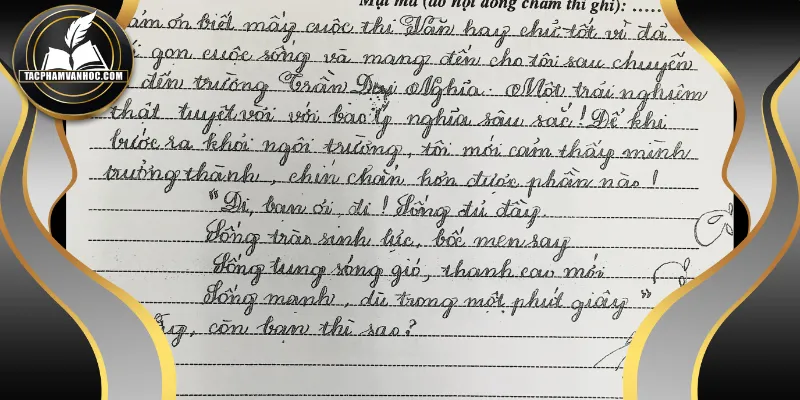 Mật mã (do hội đồng chấm thi ghi): ......
TACPHAMVANHOC.COM
ảm ơn biết mấy cuộc thi Văn hay chữ tốt vì đã
gọn cuộc sống và mang đến cho tôi sau chuyến
đến trường Trần Đại Nghĩa. Một trải nghiệm
thật tuyệt vời với bao ý nghĩa sâu sắc! Để khi
bước ra khỏi ngôi trường, tôi mới cảm thấy mình
trưởng thành, chín chắn hơn được phần nào!
"Đi, bạn ơi, đi! Sống đủ đầy
Sống trào sinh lực, bốc men say
Sống tung sóng gió, thanh cao mới
Sống mạnh, dù trong một phút giây"
, còn bạn thì sao?